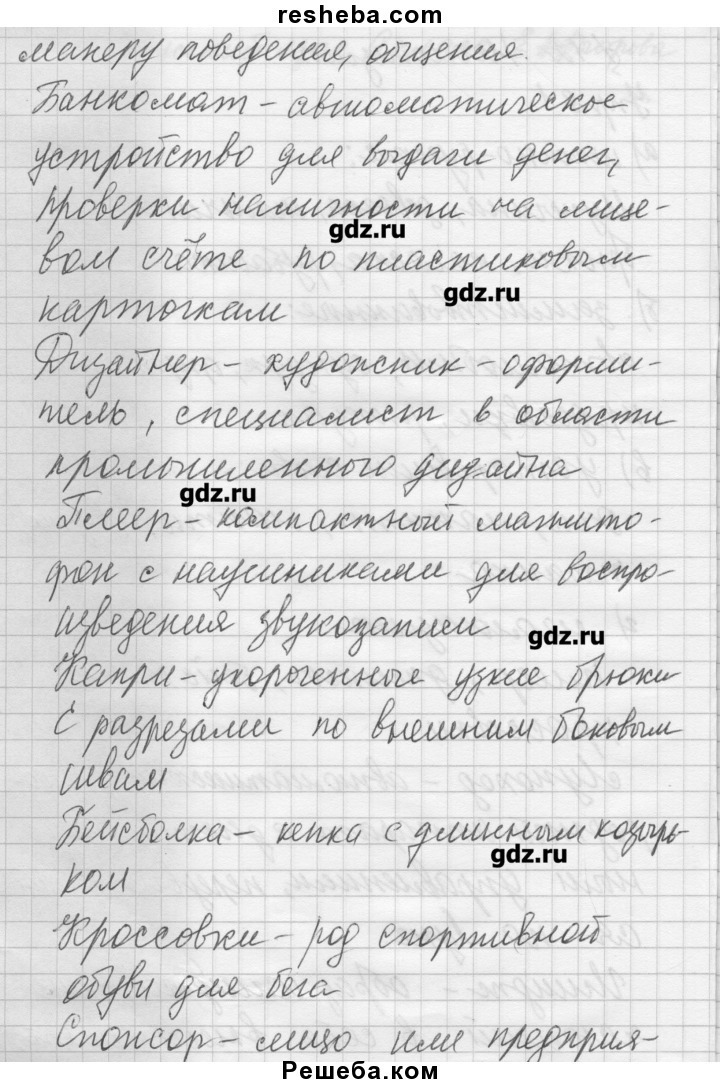 resheba.com
манеру поведения, общения.
Банкомат – автоматическое
устройство для выдачи денег,
проверки наличности на лице-
gdz.ru
вом счёте по пластиковым
gdz.ru
карточкам
Дизайнер – художник – оформи-
тель, специалист в области
промышленного дизайна
gdz.ru
Плеер – компактный магнито-
фон с наушниками для воспро-
изведения звукозаписи
gdz.ru
Капри – укороченные узкие брюки
с разрезами по внешним боковым
швам
Бейсболка – кепка с длинным козырь-
gdz.ru
ком
Кроссовки – род спортивной
обуви для бега
Спонсор – лицо или предприя-
Решеба.com